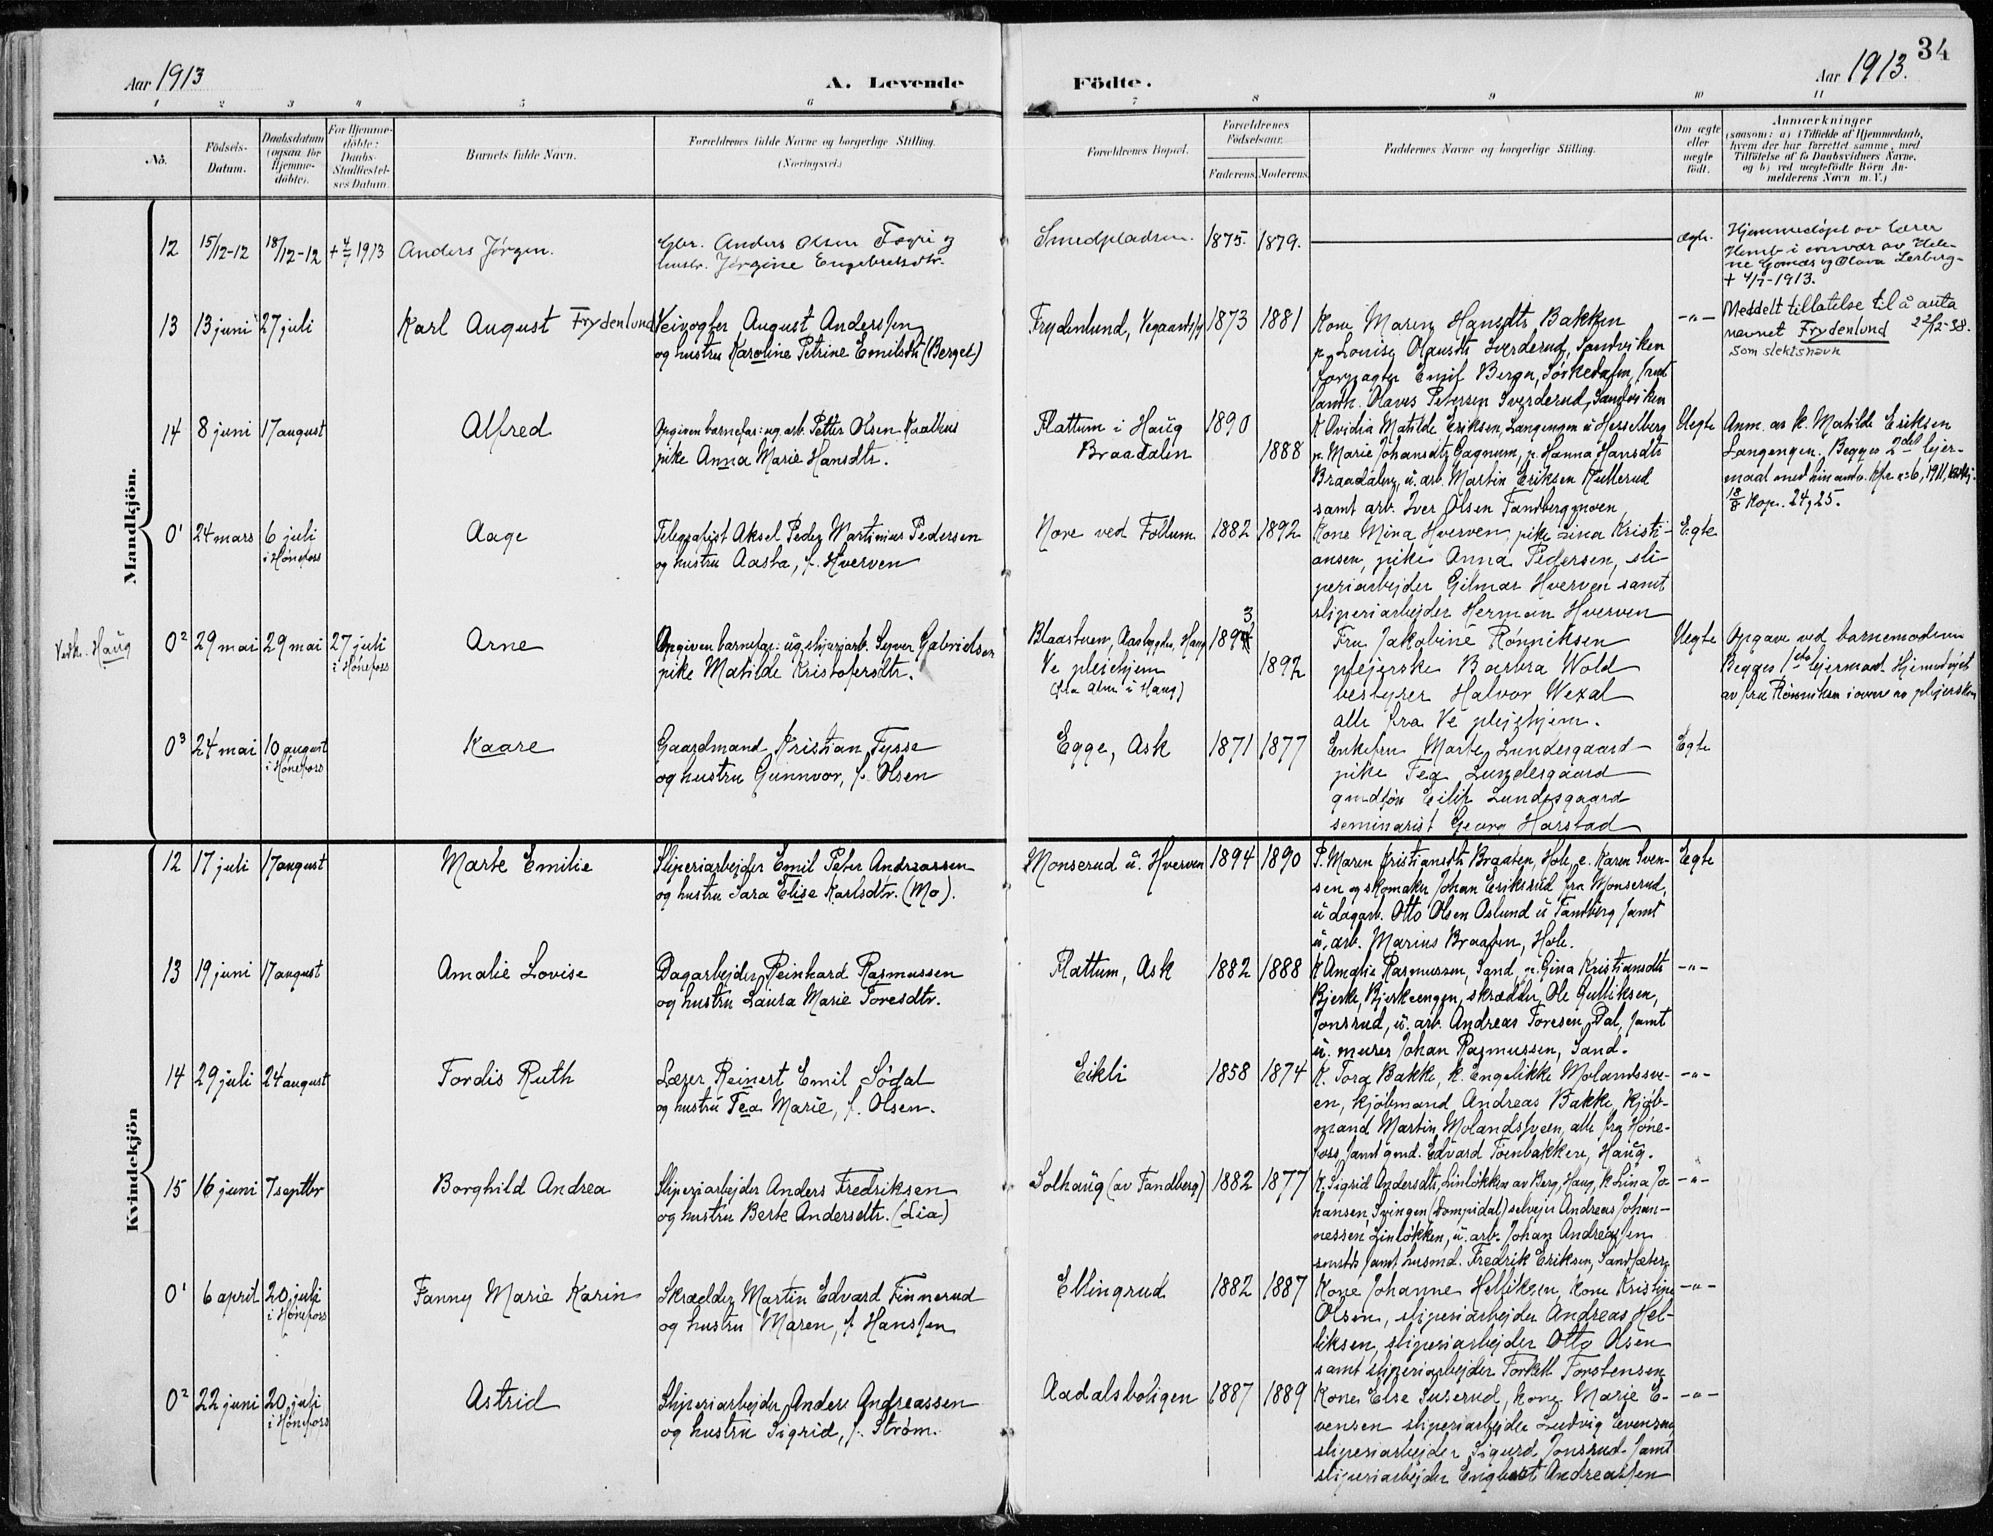 34
Aar 1913
A. Levende
Födte.
Aar 1913.
1 2 3 4 5 6 7 8 9 10 11
No.
Födsels-
Datum.
Daabsdatum
(ogsaa for
Hjemme-
döbte).
For Hjemme-
döbte:
Daabs-
Stadfæstel-
ses Datum.
Barnets fulde Navn.
Forældrenes fulde Navne og borgerlige Stilling.
(Næringsvei.)
Forældrenes Bopæl.
Forældrenes
Födselsaar.
Faderens. Moderens.
Faddernes Navne og borgerlige Stilling.
Om ægte
eller
uægte
födt.
Anmærkninger
(saasom: a) i Tilfælde af Hjemmedaab,
hvem der har forrettet samme, med
Tilföielse af to Daabsvidners Navne,
og b) ved uægtefödte Börn An-
melderens Navn m. V.)
Mandkjön.
12 15/12-12 18/12-12 + 4/1 1913 Anders Jörgen.
Gbr. Anders Olsen Togri og
hustr. Jörgine Engebretsdtr.
Smedpladsen. 1875. 1879. ægte.
Hjemmedöpt av lærer
Hemb i overvær av Hele-
ne Gomæs og Olava Lerberg-
+ 4/1-1913.
13 13 juni 27 juli Karl August Frydenlund
Veivogter August Anderssen
og hustru Karoline Petrine Emilsdtr (Berget)
Frydenlund, 1873 1881
Kone Maren Hansdtr Bakken
p. Louise Olausdtr Sverderud, Sandviken
forpagter Emil Bergn, Sørkedalen,
Olaves Petersen Sverderud, Sandviken
-"-
Meddelt tillatelse til å anta
navnet Frydenlund 22/12-38.
som slektsnavn
14 8 juni 17 august Alfred
Opgiven barnefar: ug. arb. Petter Olsen Kaalhus
pike Anna Marie Hansdtr.
Flattum i Haug 1890
Braadalen 1888
K Ovidia Matilde Eriksen, Langengen u Hesselberg
p. Marie Johansdtr Gagnum, p. Hanna Hansdtr
Braadalen, u. arb. Martin Eriksen Kullerud
samt arb. Iver Olsen Tandbergmoen
Uegte
Anm. av k. Matilde Eriksen
Langengen. Begges 2det lejer-
maal med hinanden.
24, 25.
0¹ 24 mars 6 juli
i Hönefoss
Aage
Telegrafist Aksel Peder Martinius Pedersen
og hustru Aasta, f. Hverven
Nore ved Follum 1882 1892
Kone Mina Hverven, pike Lina Kristi-
ansen, pike Anna Pedersen, sli-
periarbejder Gilmar Hverven samt
sliperiarbejder Herman Hverven
Egte
Vedk. Haug
0² 29 mai 29 mai 27 juli
i Hönefoss
Arne
Opgiven barnefar: ug. sliperiarb. Syver Gabrielsen
pike Matilde Kristofersdtr.
Blaastuen, Aasbygden, Haug 1893
Ve plejehjem 1892
Fru Jakobine Rønniksen
plejerske Barbra Wold
bestyrer Halvor Wexal
alle fra Ve plejehjem.
Uegte
Opgave ved barnemoderen
Begges 1ste lejermaal. Hjemmedøpt
av fru Rønniksen i overv av plejersken
0³ 24 mai 10 august
i Hönefoss
Kaare
Gaardmand Kristian Fysse
og hustru Gunnvor, f. Olsen
Egge, Ask 1871 1877
Enkefru Marte Lundesgaard
pike Tea Lundesgaard
gmdsøn Eilif Lundesgaard
seminarist Georg Harstad
Egte
Kvindekjön
12 17 juli 17 august Marte Emilie
Sliperiarbejder Emil Peter Andreassen
og hustru Sara Elise Karlsdtr. (Mo).
Monserud u. Hverven 1894 1890
P. Maren Kristiansdtr Braaten, Hole, e. Karen Sven-
sen og skomaker Johan Eriksrud fra Monserud,
u dagarb. Otto Olsen Oslund u Tandberg samt
u. arb. Marius Braaten, Hole.
Egte
13 19 juni 17 august Amalie Lovise
Dagarbejder Reinhard Rasmussen
og hustru Laura Marie Toresdtr.
Flattum, Ask 1882 1888
K Amalie Rasmussen, Sand, p. Gina Kristiansdtr
Bjerke, Bjerkeengen, skrædder Ole Gulliksen,
Jonsrud, u. arb. Andreas Toresen Dal, samt
u. murer Johan Rasmussen, Sand.
-"-
14 29 juli 24 august Tordis Ruth
Lærer Reinert Emil Södal
og hustru Tea Marie, f. Olsen.
Eikli 1858 1874
K. Tora Bakke, k. Engelikke Molandsve-
en, kjøbmand Andreas Bakke, kjøb-
mand Martin Molandsveen, alle fra Høne-
foss samt gmd. Edvard Toenbakken, Haug.
-"-
15 16 juni 7 septbr Borghild Andrea
Sliperiarbejder Anders Fredriksen
og hustru Berte Andersdtr. (Lia)
Solhaug (av Tandberg) 1882 1877
K. Sigrid Andersdtr, Linløkken av Berg, Haug, k Lina Jo-
hansen, Svingen (Dompidal) selvejer Andreas Johan-
nessen Linløkken, u. arb. Johan Andreassen
samt husmd. Fredrik Eriksen,
-"-
0¹ 6 april 20 juli
i Hönefoss
Fanny Marie Karin
Skrædder Martin Edvard Finnerud
og hustru Maren, f. Hanssen
Ellingrud 1882 1887
Kone Johanne Helliksen, kone Kristine
Olsen, sliperiarbejder Andreas Hel-
liksen, sliperiarbejder Otto Olsen
samt sliperiarbejder Torkell Torstensen
-"-
0² 22 juni 20 juli
i Hönefoss
Astrid
Sliperiarbejder Anders Andreassen
og hustru Sigrid, f. Strøm.
Aadalsboligen 1887 1889
Kone Else Suserud, kone Marie E-
vensen sliperiarbejder Ludvig Evensen
sliperiarbejder Sigurd Jonsrud samt
sliperiarbejder Engbret Andreassen
-"-